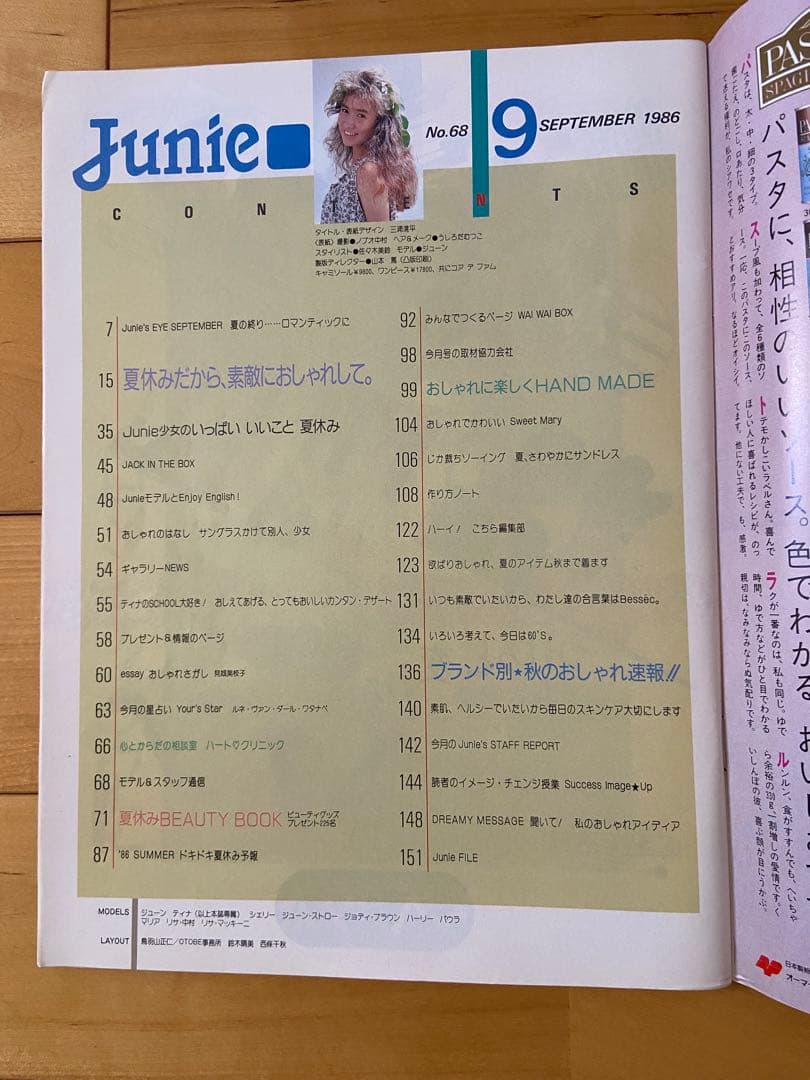 Junie
No.68
9 SEPTEMBER 1986
CONTENTS
タイトル・表紙デザイン 三浦滉平
〈表紙〉撮影●ノブオ中村 ヘア&メーク●うしろだむつこ
スタイリスト●佐々木美鈴 モデル●ジューン
製版ディレクター●山本 篤（凸版印刷）
キャミソール￥9800、ワンピース￥17800、共にコア デ ファム
7 Junie's EYE SEPTEMBER 夏の終り……ロマンティックに
15 夏休みだから、素敵におしゃれして。
35 Junie少女のいっぱい いいこと 夏休み
45 JACK IN THE BOX
48 JunieモデルとEnjoy English!
51 おしゃれのはなし サングラスかけて別人、少女
54 ギャラリーNEWS
55 ティナのSCHOOL大好き! おしえてあげる、とってもおいしいカンタン・デザート
58 プレゼント&情報のページ
60 essay おしゃれさがし
63 今月の星占い Your's Star ルネ・ヴァン・ダール・ワタナベ
66 心とからだの相談室 ハート♡クリニック
68 モデル&スタッフ通信
71 夏休みBEAUTY BOOK ビューティグッズ
プレゼント225名
87 '86 SUMMER ドキドキ夏休み予報
92 みんなでつくるページ WAI WAI BOX
98 今月号の取材協力会社
99 おしゃれに楽しくHAND MADE
104 おしゃれでかわいい Sweet Mary
106 じか裁ちソーイング 夏、さわやかにサンドレス
108 作り方ノート
122 ハーイ! こちら編集部
123 欲ばりおしゃれ、夏のアイテム秋まで着ます
131 いつも素敵でいたいから、わたし達の合言葉はBessëc。
134 いろいろ考えて、今日は60'S。
136 ブランド別★秋のおしゃれ速報!!
140 素肌、ヘルシーでいたいから毎日のスキンケア大切にします
142 今月のJunie's STAFF REPORT
144 読者のイメージ・チェンジ授業 Success Image★Up
148 DREAMY MESSAGE 聞いて! 私のおしゃれアイディア
151 Junie FILE
MODELS ジューン ティナ（以上本誌専属） シェリー ジューン・ストロー ジョディ・ブラウン ハーリー パウラ
マリア リサ・中村 リサ・マッキーニ
LAYOUT 鳥羽山正仁／OTOBE事務所 鈴木晴美 西條千秋
PAS
SPAG
パスタに、相性のいいソース。色でわかる、おい
パスタは、太・中・細の3タイプ。
スープ風も加わって、全6種類のソ
ース。一応、このパスタにこのソース、
とおすすめアリ。なるほどオイシイ。
トテモかしこいラベルさん。喜んで
ほしい人に喜ばれるレシピが、のっ
てます。他にない工夫で、も、感激。
ラクが一番なのは、私も同じ。ゆで
時間、ゆで方などがひと目でわかる
親切は、なみなみならぬ気配りです。
ルンルン、食がすすんでも、へいちゃ
ら余裕の330g、一割増しの愛情です。く
いしんぼの彼、喜ぶ顔が目にうかぶ。